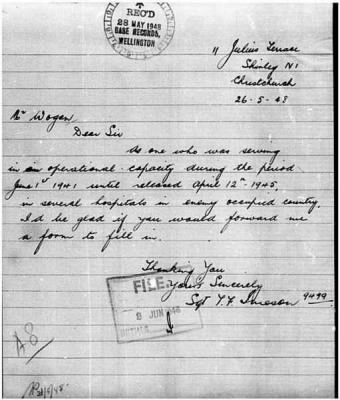 REC'D
28 MAY 1948
BASE RECORDS,
WELLINGTON
11 Julius Terrace
Shirley N1
Christchurch
26-5-48
Mr Wogan
Dear Sir
As one who was serving
in an operational capacity during the period
June 1st 1941 until released April 12th 1945,
in several hospitals in enemy occupied country.
I'd be glad if you would forward me
a form to fill in.
Thanking You
Yours Sincerely
Sgt T. F. 9499
FILE
8 JUN 1948
INITIALS
A8